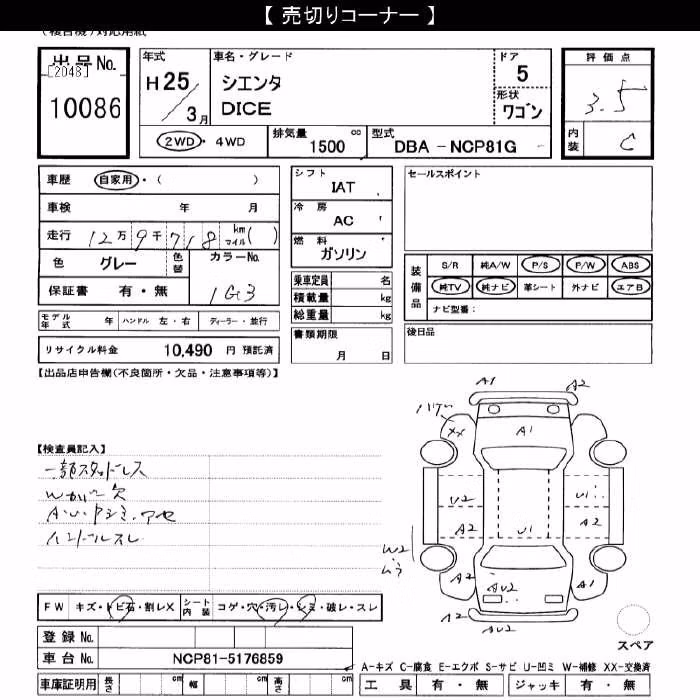 【 売切りコーナー 】
(複合機)対応用紙
出品No.
[2048]
10086
年式
H25/3月
車名・グレード
シエンタ
DICE
ドア
5
形状
ワゴン
評価点
3.5
内装
C
2WD ・ 4WD
排気量 cc
1500
型式
DBA - NCP81G
車歴 自家用・( )
車検 年 月
走行 12万9千718 km マイル( )
色 グレー 色替
カラーNo.
1G3
保証書 有・無
モデル年式 年 ハンドル 左・右 ディーラー・並行
リサイクル料金 10,490 円 預託済
シフト
IAT
冷房
AC
燃料
ガソリン
乗車定員 名
積載量 kg
総重量 kg
書類期限
月 日
セールスポイント
装備品
S/R 純A/W P/S P/W ABS
純TV 純ナビ 革シート 外ナビ エアB
ナビ型番:
後日品
【出品店申告欄(不良箇所・欠品・注意事項等)】
【検査員記入】
一部スタッドレス
Wカバー欠
A・U・トビシミ・アセ
ハンドルスレ
A1
A2
ハゲ
XX
A1
U2
U1
A2
A2
U1
W2
ムラ
A2
AU2
A1
A2
AU2
スペア
FW キズ・トビ石・割レX シート内装 コゲ・穴・汚レ・シミ・破レ・スレ
登録No.
車台No. NCP81-5176859
車庫証明用 長さ cm 幅 cm 高さ cm
A-キズ C-腐食 E-エクボ S-サビ U-凹ミ W-補修 XX-交換済
工具 有・無 ジャッキ 有・無